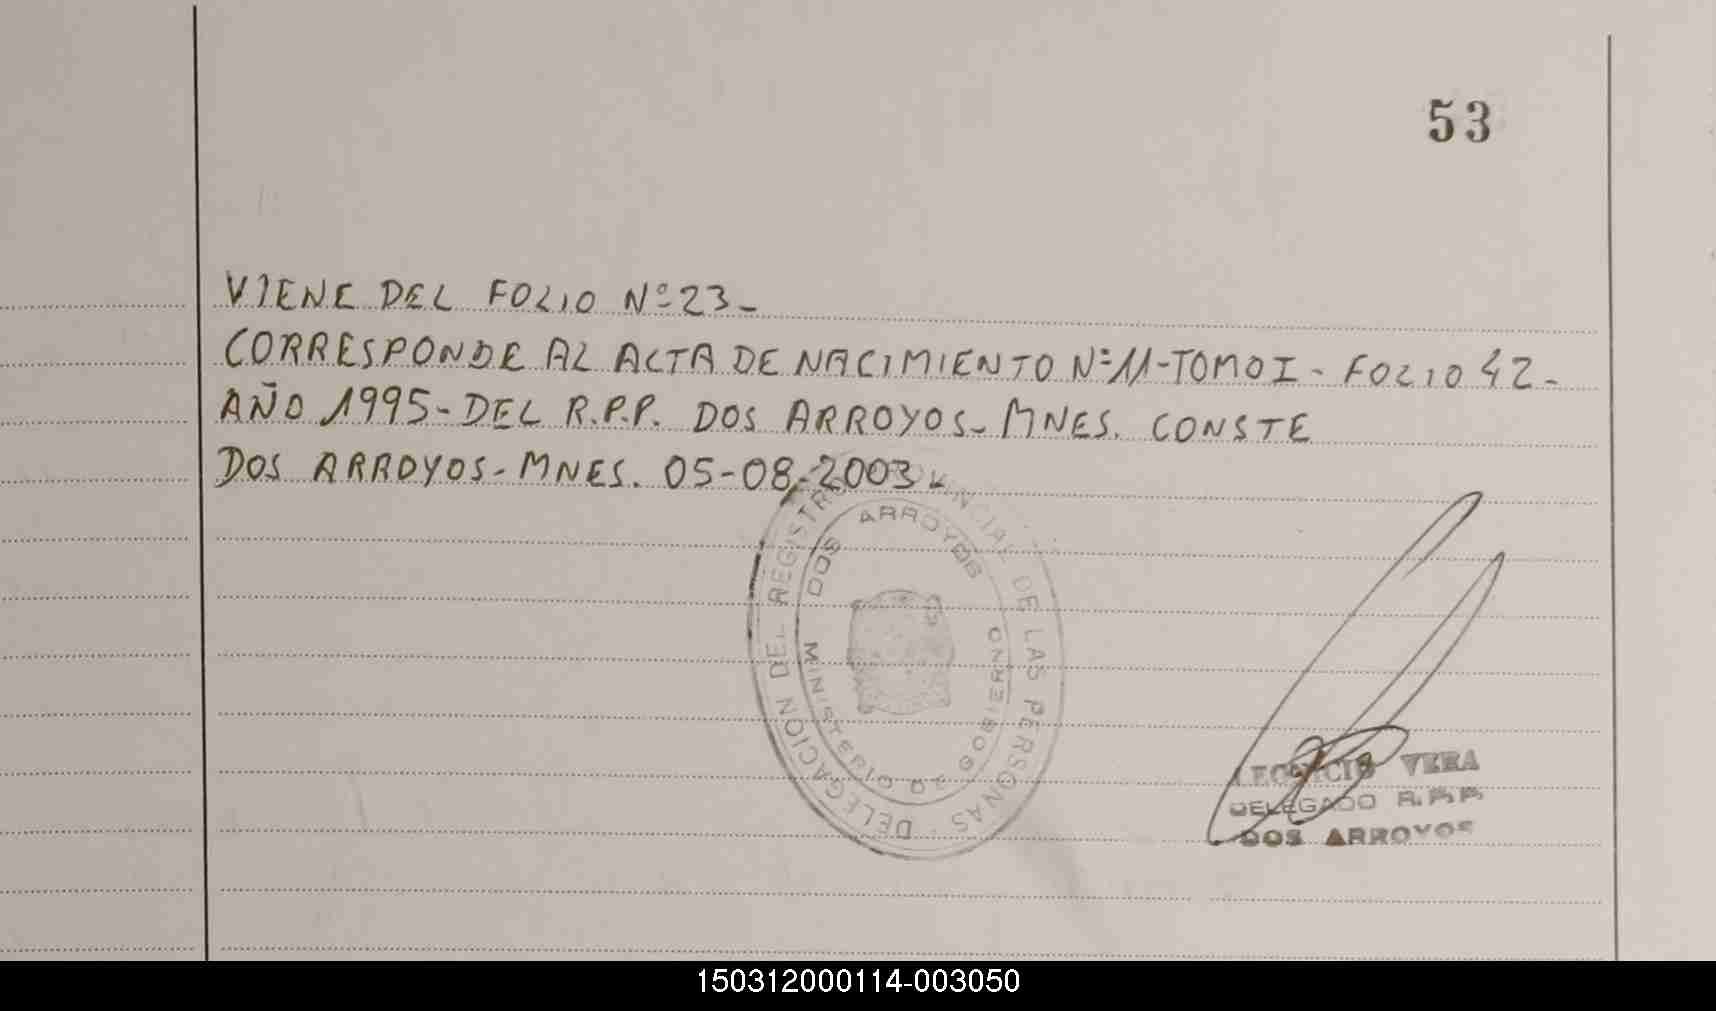 53
VIENE DEL FOLIO Nº 23-
CORRESPONDE AL ACTA DE NACIMIENTO Nº 11-TOMO I - FOLIO 42-
AÑO 1995- DEL R.P.P. DOS ARROYOS- MNES. CONSTE
DOS ARROYOS- MNES. 05-08-2003
DELEGACION DEL REGISTRO PROVINCIAL DE LAS PERSONAS
DOS ARROYOS
MINISTERIO DE GOBIERNO
LEONCIO VERA
DELEGADO R.P.P.
DOS ARROYOS
150312000114-003050